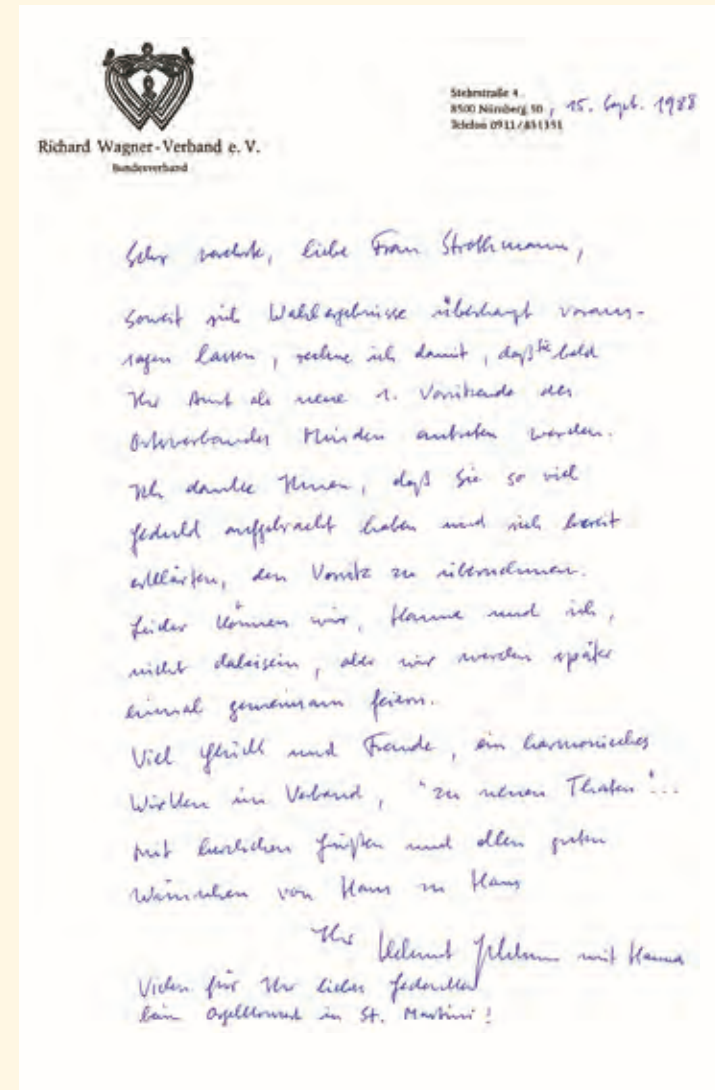 Richard Wagner-Verband e. V.
Bundesverband
8500 Nürnberg 50, 15. Sept. 1988
Telefon 0911/831351
Sehr verehrte, liebe Frau Strothmann,
soweit sich Wahlergebnisse überhaupt voraus-
sagen lassen, rechne ich damit, daß Sie bald
Ihr Amt als neue 1. Vorsitzende des
Ortsverbandes Minden antreten werden.
Ich danke Ihnen, daß Sie so viel
Geduld aufgebracht haben und sich bereit
erklärten, den Vorsitz zu übernehmen.
Leider können wir, Hanna und ich,
nicht dabeisein, aber wir werden später
einmal gemeinsam feiern.
Viel Glück und Freude, ein harmonisches
Wirken im Verband, "zu neuen Thaten"...
Mit herzlichen Grüßen und allen guten
Wünschen von Haus zu Haus
Ihr Helmut mit Hanna
für Ihr liebes Gedenken
beim Orgelkonzert in St. Martini!